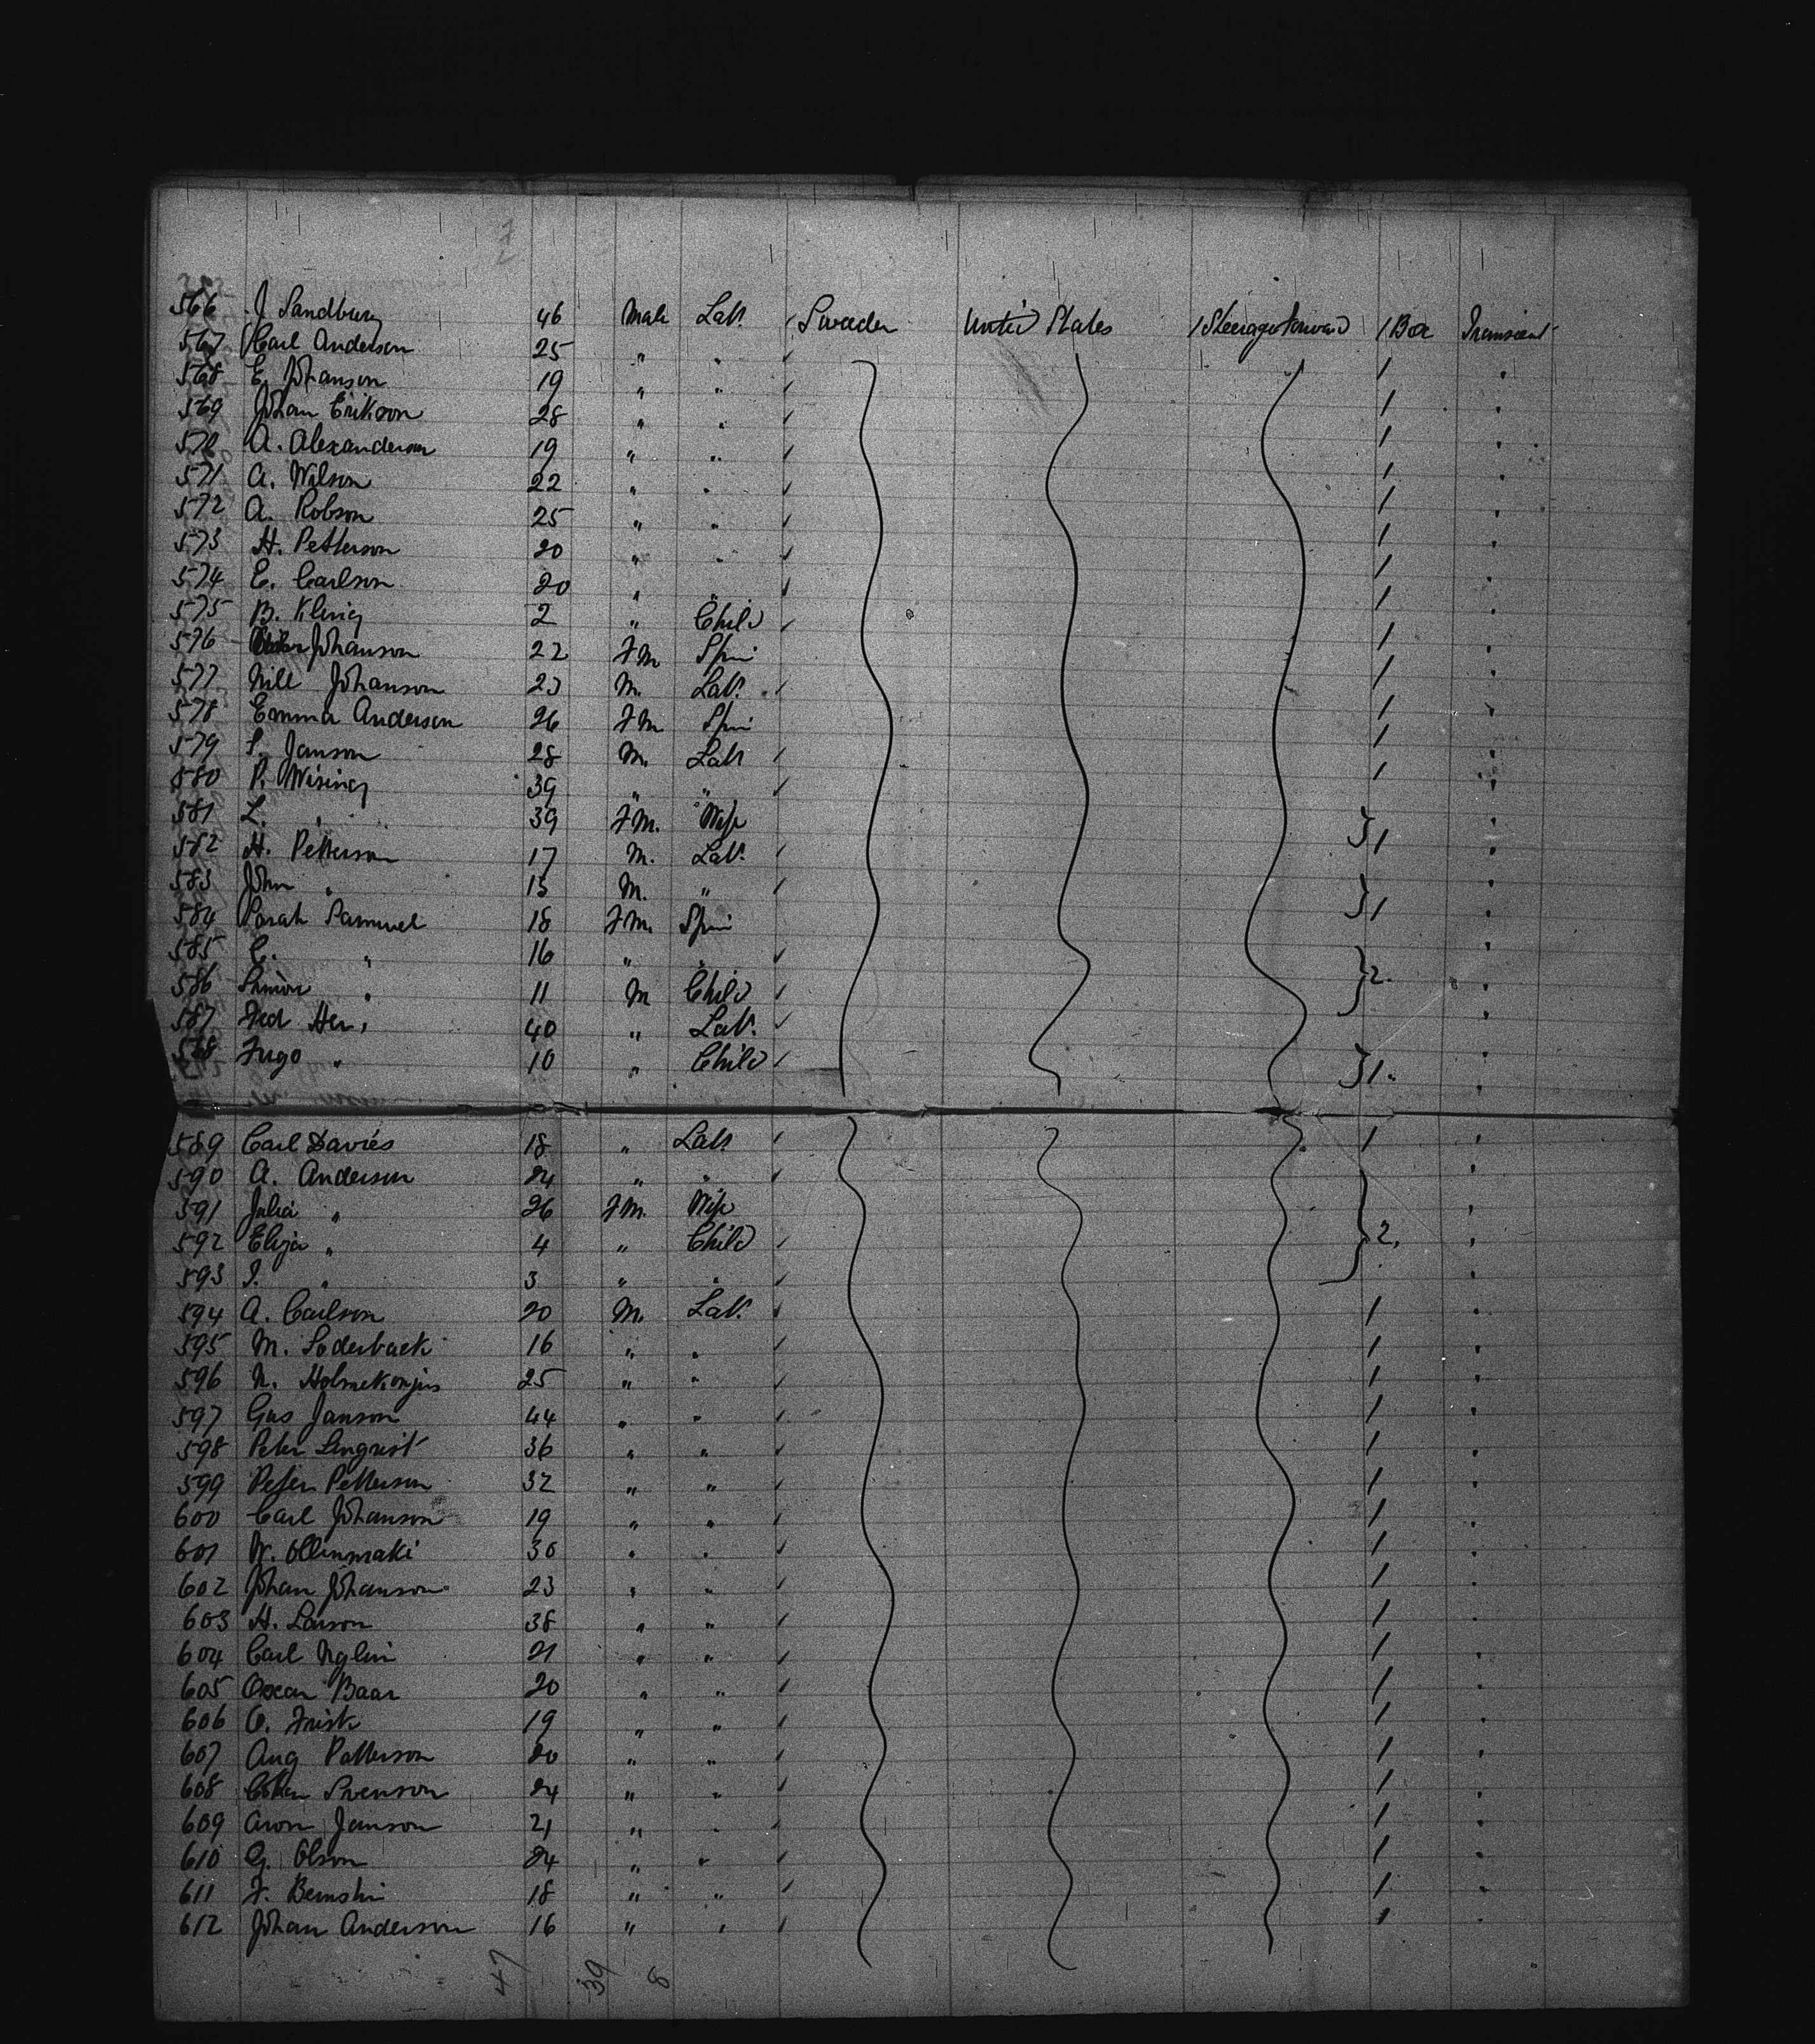 566 J Sandburg 46 Male Lab. Sweden United States Steerage forward 1 Box Transient
567 Carl Anderson 25 " " 1 "
568 E. Johanson 19 " " 1 "
569 Johan Erikson 28 " " 1 "
570 A. Alexanderson 19 " " 1 "
571 A. Wilson 22 " " 1 "
572 A. Robson 25 " " 1 "
573 H. Petterson 20 " " 1 "
574 E. Carlson 20 " " 1 "
575 B. Kling 2 " Child 1 "
576 Johanson 22 Fm Spin 1 "
577 Nill Johanson 23 M. Lab. 1 "
578 Emma Anderson 26 Fm Spin 1 "
579 S. Janson 28 M. Lab 1 "
580 P. Wising 39 " " "
581 L. " 39 Fm. Wife } 1 "
582 H. Petterson 17 M. Lab. "
583 John " 15 M. " } 1 "
584 Sarah Samuel 18 Fm. Spin "
585 C. " 16 " " "
586 Simon " 11 M Child } 2. "
587 Fred Her, 40 " Lab. "
588 Hugo " 10 " Child } 1. "
589 Carl Davies 18 " Lab. 1 "
590 A. Anderson 24 " " "
591 Julia " 26 Fm. Wife "
592 Eliza " 4 " Child } 2. "
593 I. " 3 " " "
594 A. Carlson 20 M. Lab. 1 "
595 M. Soderback 16 " " 1 "
596 N. 25 " " 1 "
597 Gus Janson 44 " " 1 "
598 Peter Lingvist 36 " " 1 "
599 Peter Petterson 32 " " 1 "
600 Carl Johanson 19 " " 1 "
601 W. Ollinmaki 30 " " 1 "
602 Johan Johanson 23 " " 1 "
603 H. Larson 38 " " 1 "
604 Carl Nylin 21 " " 1 "
605 Oscar Baar 20 " " 1 "
606 O. Frisk 19 " " 1 "
607 Aug Patterson 20 " " 1 "
608 Svenson 24 " " 1 "
609 Aron Janson 21 " " 1 "
610 G. Olson 24 " " 1 "
611 F. Bernshi 18 " " 1 "
612 Johan Anderson 16 " " 1 "
47 39 8